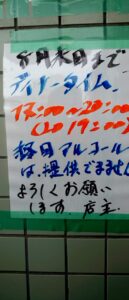 8月末日まで
ディナータイム
17:00〜20:00
(LO 19:00)
終日アルコール
は、提供できません
よろしくお願い
します。店主